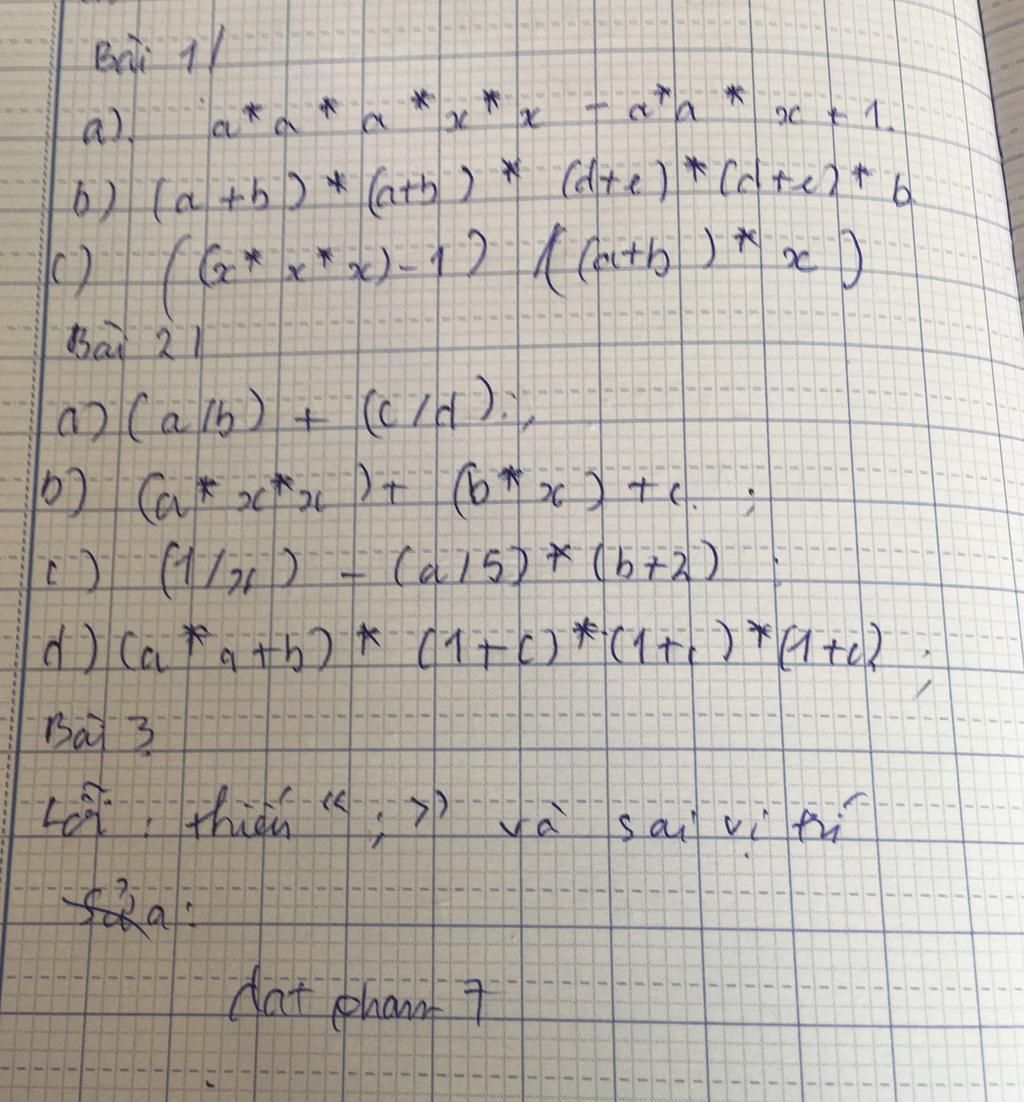 Bài 1/
a). a * a * a * x * x - a * a * x + 1.
b) (a+b) * (a+b) * (d+e) * (d+e) * b
c) ((x * x * x) - 1) ((a+b) * x)
Bài 2/
a) (a/b) + (c/d);
b) (a * x * x) + (b * x) + c. ;
c) (1/x) - (a/5) * (b+2) ;
d) (a * a+b) * (1+c) * (1+c) * (1+c) ;
Bài 3
Lỗi : thiếu ";" và sai vị trí
Sửa :
dat pham 7